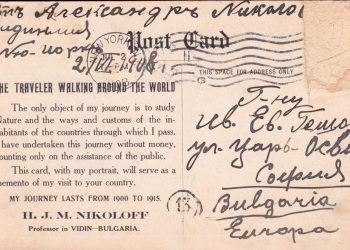 отъ Александръ Николо
Ню-Iоркъ
Post Card
THIS SPACE FOR ADDRESS ONLY
THE TRAVELER WALKING AROUND THE WORLD
The only object of my journey is to study
Nature and the ways and customs of the in-
habitants of the countries through which I pass.
have undertaken this journey without money,
counting only on the assistance of the public.
This card, with my portrait, will serve as a
memento of my visit to your country.
MY JOURNEY LASTS FROM 1900 TO 1915.
H. J. M. NIKOLOFF
Professor in VIDIN-BULGARIA.
Г-ну
Ив. Ев. Гешо
ул. Царь Осв
София
Bulgaria
Europa
13